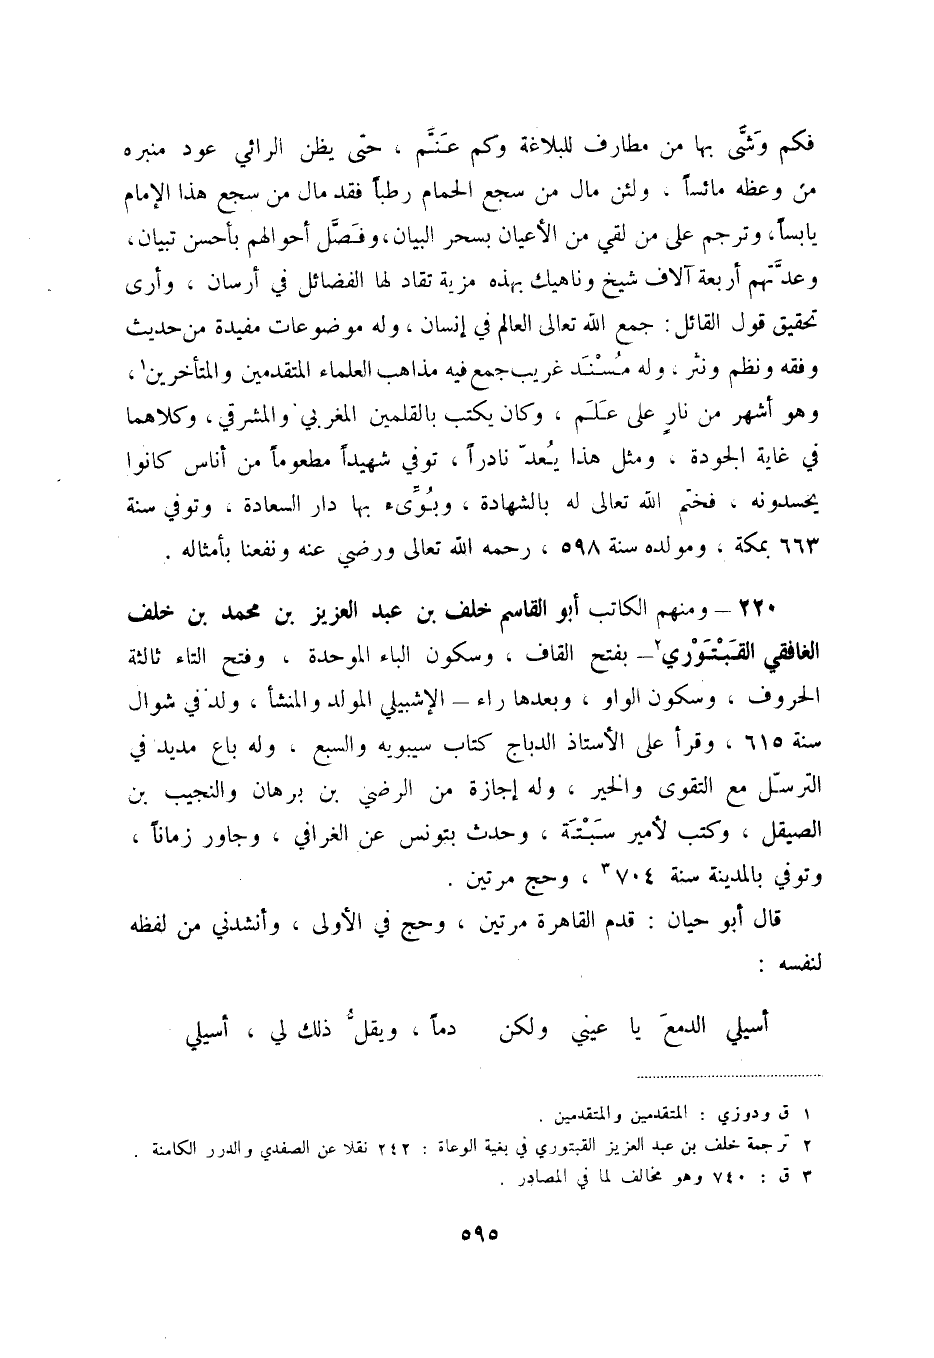 فكم وَشَّى بها من مطارف للبلاغة وكم عَنَّم ، حتى يظن الرائي عود منبره
من وعظه مائساً ، ولئن مال من سجع الحمام رطباً فقد مال من سجع هذا الإمام
يابساً، وترجم على من لقي من الأعيان بسحر البيان، وفَصَّل أحوالهم بأحسن تبيان،
وعدَّتهم أربعة آلاف شيخ وناهيك بهذه مزية تقاد لها الفضائل في أرسان ، وأرى
تحقيق قول القائل : جمع الله تعالى العالم في إنسان ، وله موضوعات مفيدة من حديث
وفقه ونظم ونثر ، وله مُسْنَد غريب جمع فيه مذاهب العلماء المتقدمين والمتأخرين١ ،
وهو أشهر من نارٍ على عَلَم ، وكان يكتب بالقلمين المغربي والمشرقي ، وكلاهما
في غاية الجودة ، ومثل هذا يُعدّ نادراً ، توفي شهيداً مطعوماً من أناس كانوا
يحسدونه ، فختم الله تعالى له بالشهادة ، وبُوِّىء بها دار السعادة ، وتوفي سنة
٦٦٣ بمكة ، ومولده سنة ٥٩٨ ، رحمه الله تعالى ورضي عنه ونفعنا بأمثاله .
٢٢٠ – ومنهم الكاتب أبو القاسم خلف بن عبد العزيز بن محمد بن خلف
الغافقي القَبْتَوْري٢ – بفتح القاف ، وسكون الباء الموحدة ، وفتح التاء ثالثة
الحروف ، وسكون الواو ، وبعدها راء – الإشبيلي المولد والمنشأ ، ولد في شوال
سنة ٦١٥ ، وقرأ على الأستاذ الدباج كتاب سيبويه والسبع ، وله باع مديد في
الترسّل مع التقوى والخير ، وله إجازة من الرضي بن برهان والنجيب بن
الصيقل ، وكتب لأمير سَبْتَة ، وحدث بتونس عن الغرافي ، وجاور زماناً ،
وتوفي بالمدينة سنة ٧٠٤٣ ، وحج مرتين .
قال أبو حيان : قدم القاهرة مرتين ، وحج في الأولى ، وأنشدني من لفظه
لنفسه :
أسيلي الدمعَ يا عيني ولكن دماً ، ويقلُّ ذلك لي ، أسيلي
١ ق ودوزي : المتقدمين والمتقدمين .
٢ ترجمة خلف بن عبد العزيز القبتوري في بغية الوعاة : ٢٤٢ نقلا عن الصفدي والدرر الكامنة .
٣ ق : ٧٤٠ وهو مخالف لما في المصادر .
٥٩٥